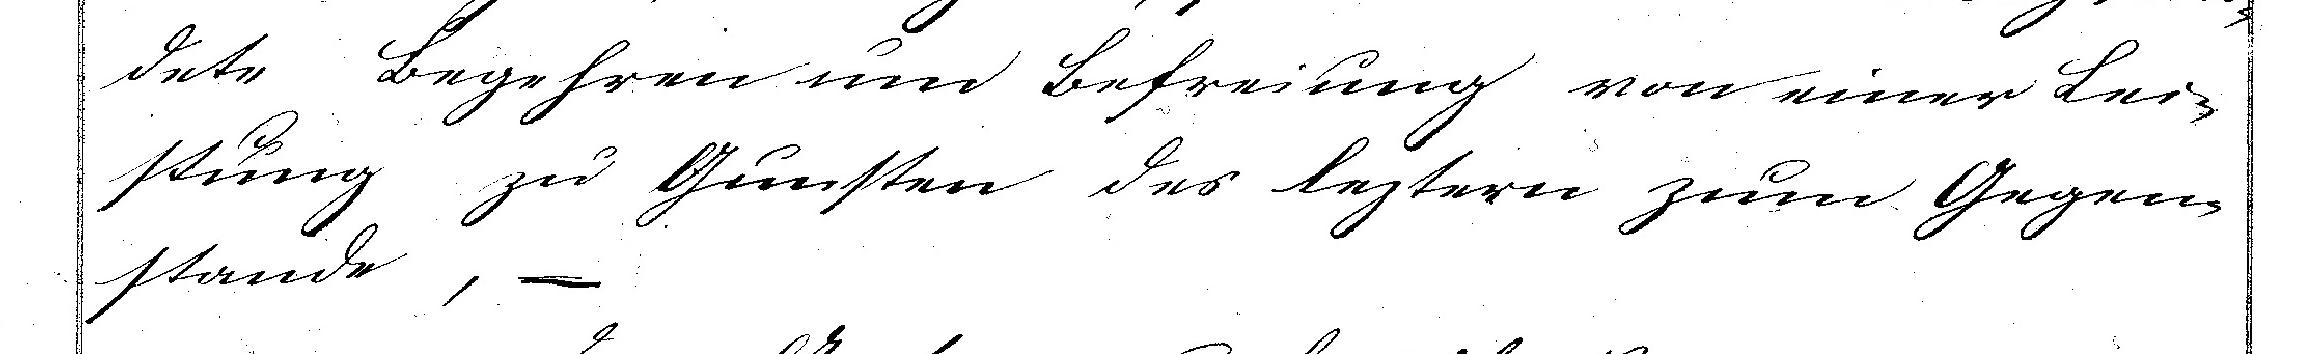 dete Begehren um Befreiung von einer Lei-
stung zu Gunsten des leztern zum Gegen-
stande , —